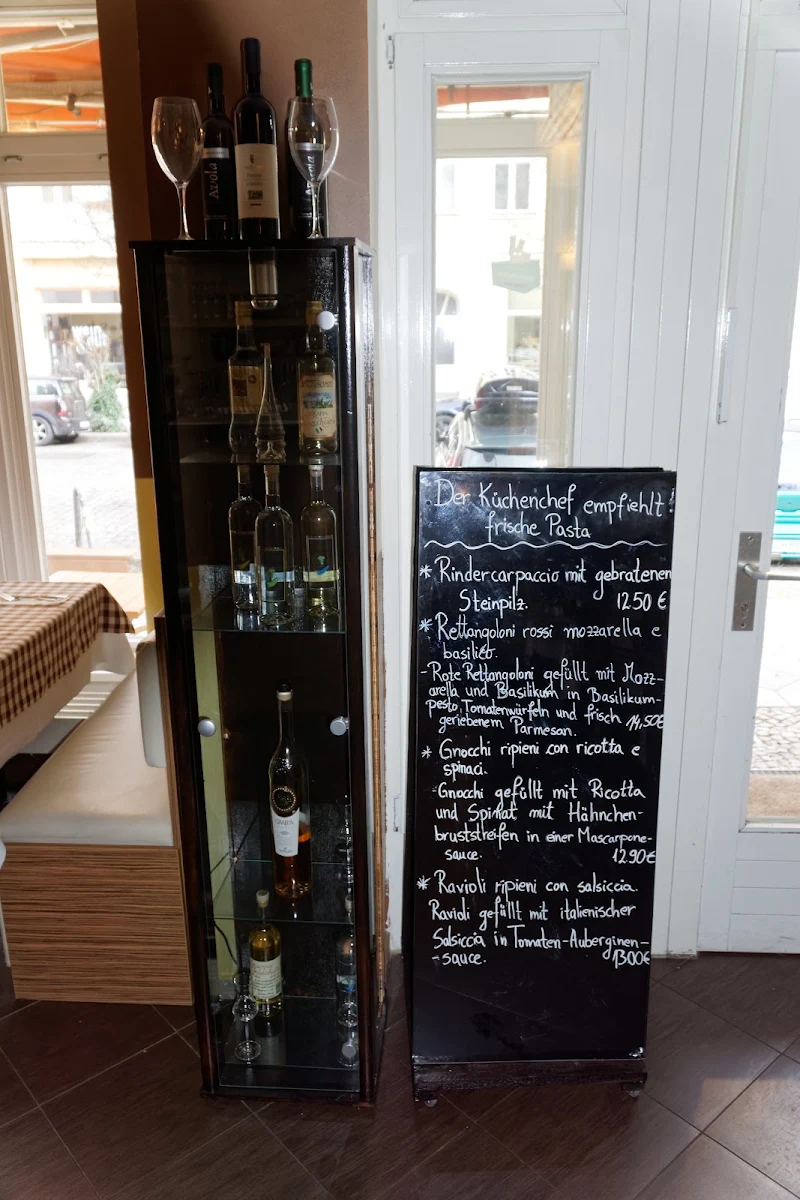 Avola
GRAPPA
Der Küchenchef empfiehlt:
frische Pasta
* Rindercarpaccio mit gebratenen
Steinpilz. 12.50 €
* Rettangoloni rossi mozzarella e
basilico.
- Rote Rettangoloni gefüllt mit Mozz-
arella und Basilikum in Basilikum-
pesto, Tomatenwürfeln und frisch 14,50€
geriebenem Parmesan.
* Gnocchi ripieni con ricotta e
spinaci.
- Gnocchi gefüllt mit Ricotta
und Spinat mit Hähnchen-
bruststreifen in einer Mascarpone-
sauce. 12.90€
* Ravioli ripieni con salsiccia.
Ravioli gefüllt mit italienischer
Salsiccia in Tomaten-Auberginen-
-sauce. 13.00€